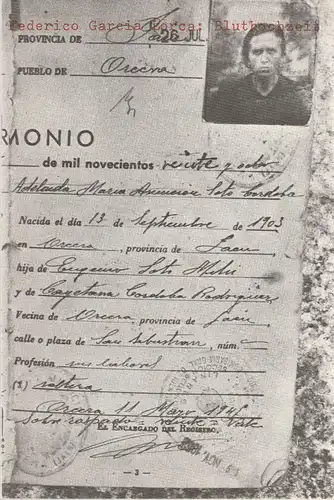 Federico García Lorca: Bluthochzeit
PROVINCIA DE Jaén
26 JUL
PUEBLO DE Orcera
RMONIO
de mil novecientos veinte y ocho
Adelaida María Asunción Soto Cordoba
Nacida el día 13 de Septiembre de 1903
en Orcera, provincia de Jaén
hija de Eugenio Soto
y de Cayetana Cordoba Rodriguez
Vecina de Orcera, provincia de Jaén,
calle o plaza de San Sebastian, núm.
Profesión sus labores
(1.) soltera
Orcera 11 Mayo
Sobre raspado veinte = Vale
EL ENCARGADO DEL REGISTRO,
— 3 —